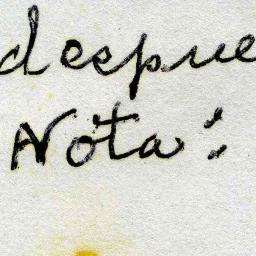 despue
Nota: